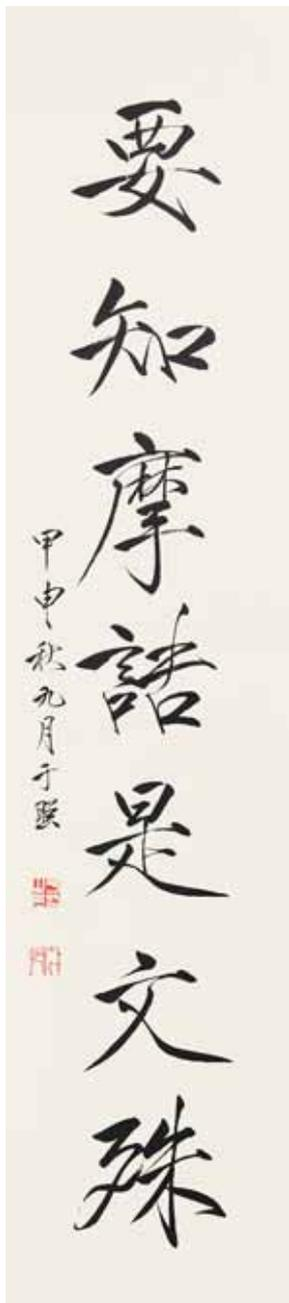 要知摩詰是文殊
甲申秋九月于照